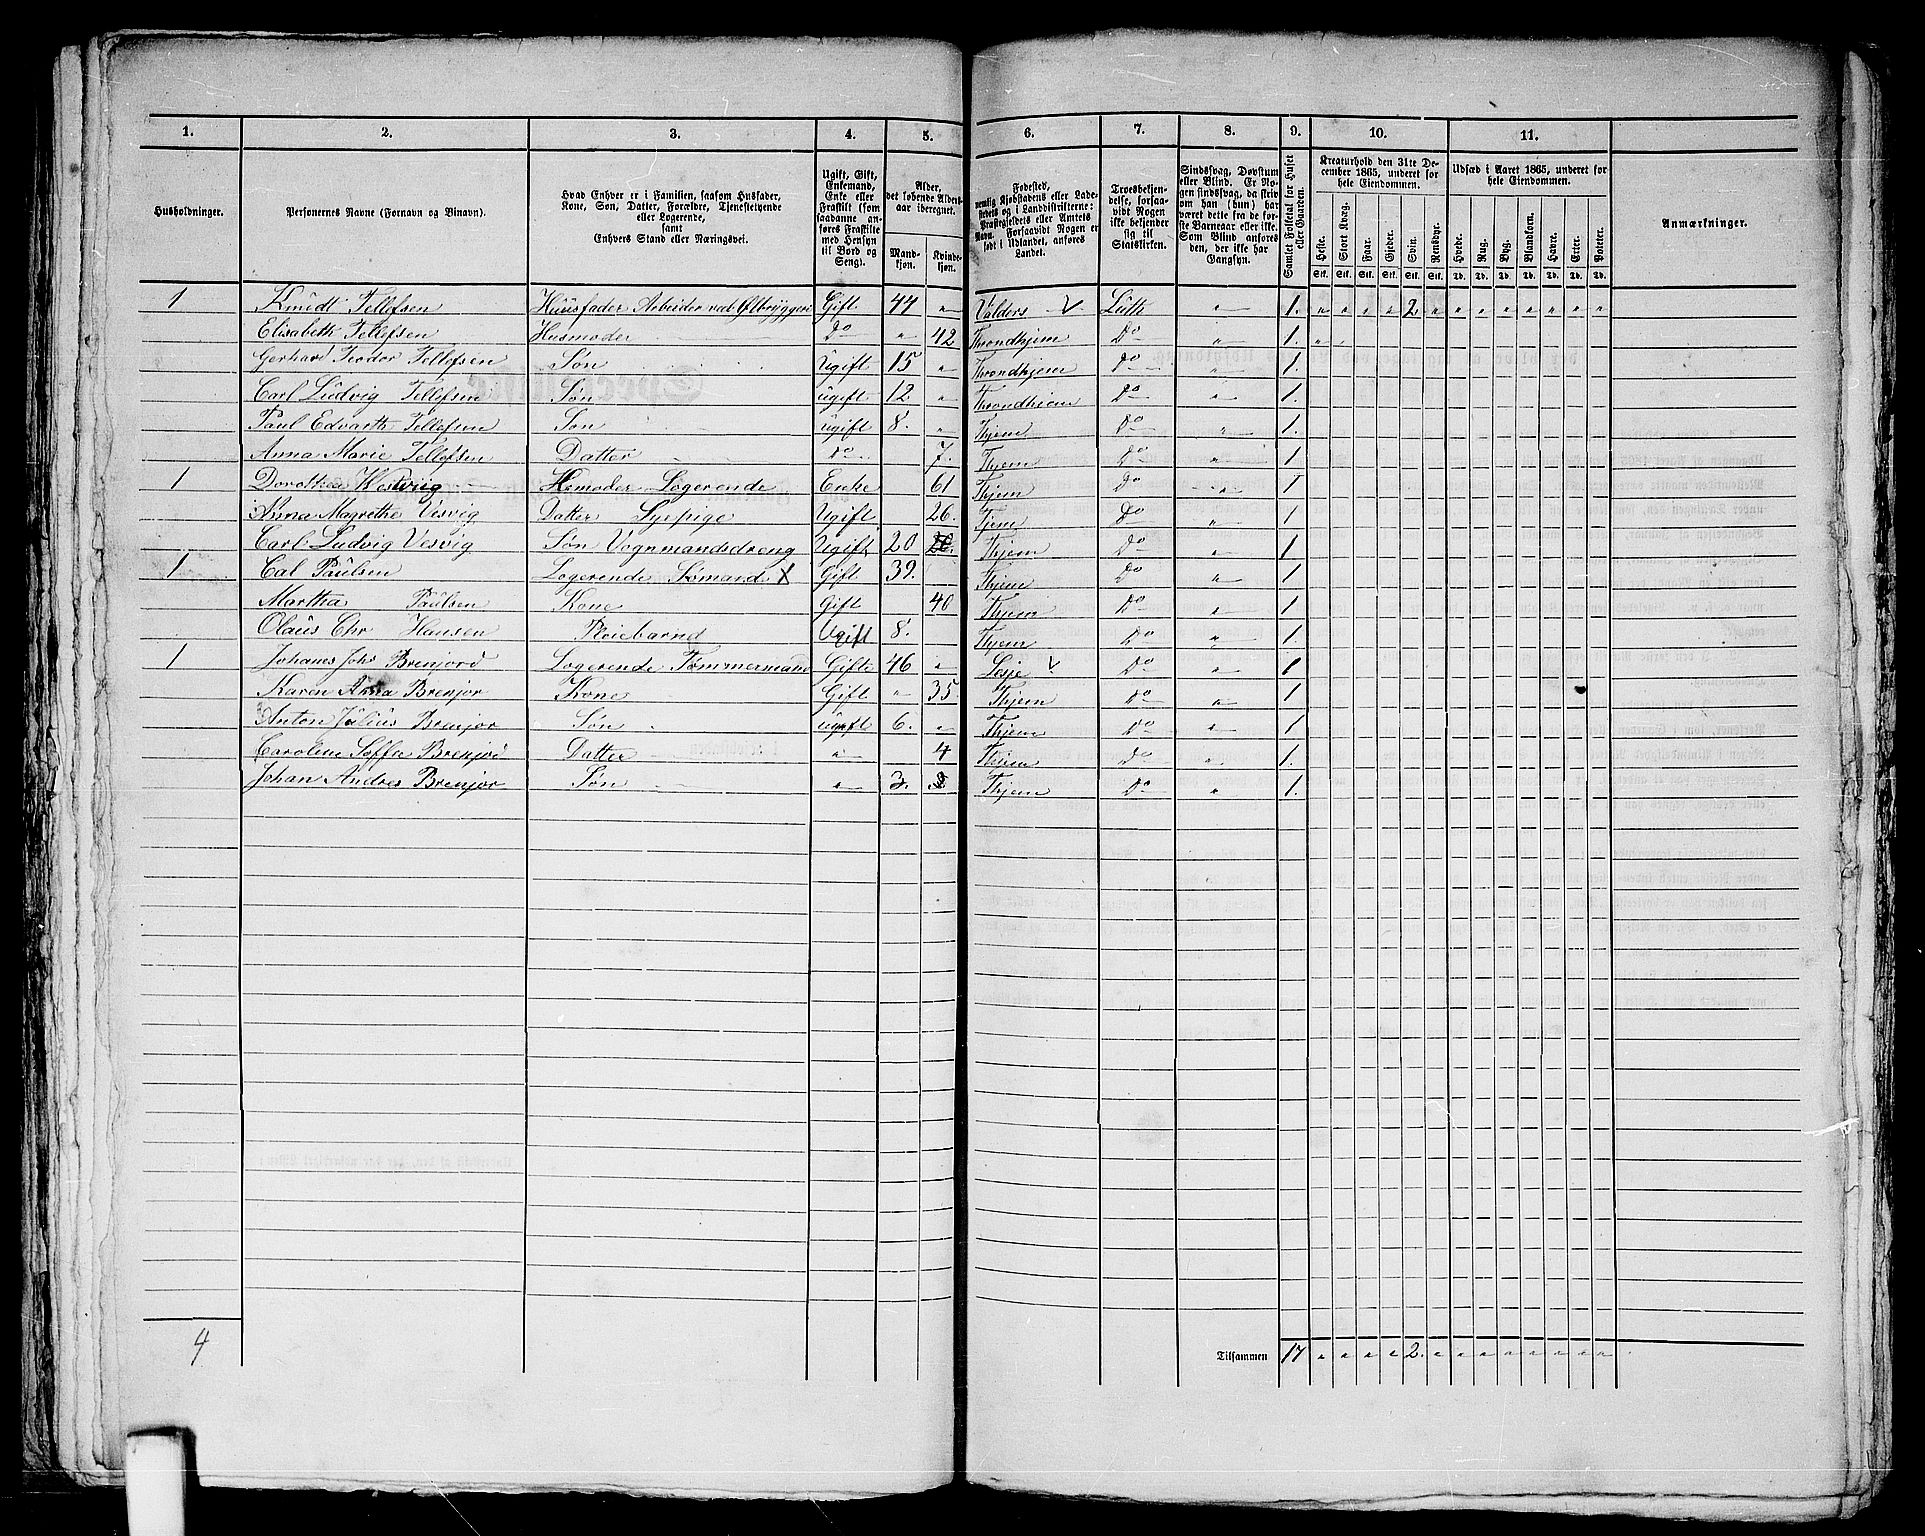 1. 2. 3. 4. 5. 6. 7. 8. 9. 10. 11.
Husholdninger.
Personernes Navne (Fornavn og Binavn).
Hvad Enhver er i Familien, saasom Husfader, Kone, Søn, Datter, Forældre, Tjenestetyende eller Logerende, samt Enhvers Stand eller Næringsvei.
Ugift, Gift, Enkemand, Enke eller Fraskilt (som saadanne anføres Fraskilte med Hensyn til Bord og Seng).
Alder, det løbende Aldersaar iberegnet.
Mandkjøn. Kvindekjøn.
Fødested, nemlig Kjøbstadens eller Ladestedets og i Landdistrikterne: Præstegjeldets eller Amtets Navn. Forsaavidt Nogen er født i Udlandet, anføres Landet.
Troesbekjendelse, forsaavidt Nogen ikke bekjender sig til Statskirken.
Sindssvag, Døvstum eller Blind. Er Nogen sindssvag, da skrives om han (hun) har været dette fra de første Barneaar eller ikke. Som Blind anføres den, der ikke har Gangsyn.
Samlet Folketal for Huset eller Gaarden.
Kreaturhold den 31te December 1865, underet for hele Eiendommen.
Heste. Stort Kvæg. Faar. Gjeder. Svin. Rensdyr.
Udsæd i Aaret 1865, underet for hele Eiendommen.
Hvede. Rug. Byg. Blandkorn. Havre. Erter. Poteter.
Stk. Stk. Stk. Stk. Stk. Stk. Td. Td. Td. Td. Td. Td. Td.
Anmærkninger.
1 Knüdt Tellefsen Huusfader Arbeider ved Ølbryggeri Gift 44 " Valders Luth " 1. " " " " 2 " " " " " " " "
Elisabeth Tellefsen Husmoder Do " 42 Throndhjem Do " 1. " "
Gerhard Teodor Tellefsen Søn Ugift 15 " Throndhjem Do " 1.
Carl Ludvig Tellefsen Søn ugift 12 " Throndhjem Do " 1.
Paul Edvarth Tellefsen Søn ugift 8. " Thjem Do " 1.
Anna Marie Tellefsen Datter Do 7. Thjem Do " 1
1 Dorothea Westviig Hemoder Logerende Enke 61 Thjem Do " 1
Anna Magrethe Visvig Datter Syepige Ugift 26. Tjem Do " 1
Carl Ludvig Visvig Søn Vognmandsdreng Ugift 20 Thjem Do " 1
1 Cal Paülsen Logerende Sømand X Gift 39. Thjem Do " 1
Martha Paülsen Kone Gift 40 Thjem Do " 1.
Olaüs Chr Hansen Pleiebarnd Ugift 8. Thjem Do " 1.
1 Johanes Johs Brenjord Logerende Tømmermand Gifte 46 " Lesje Do " 1
Karen Anna Brenjor Kone Gift " 35. Thjem Do " 1
Anton Jülius Brenjor Søn ugift 6. " Thjem Do " 1
Caroline Soffie Brenjor Datter " 4 Thjem Do " 1.
Johan Andres Brenjor Søn " 3. Thjem Do " 1.
4 Tilsammen 17 " " " " 2. " " " " " " " "